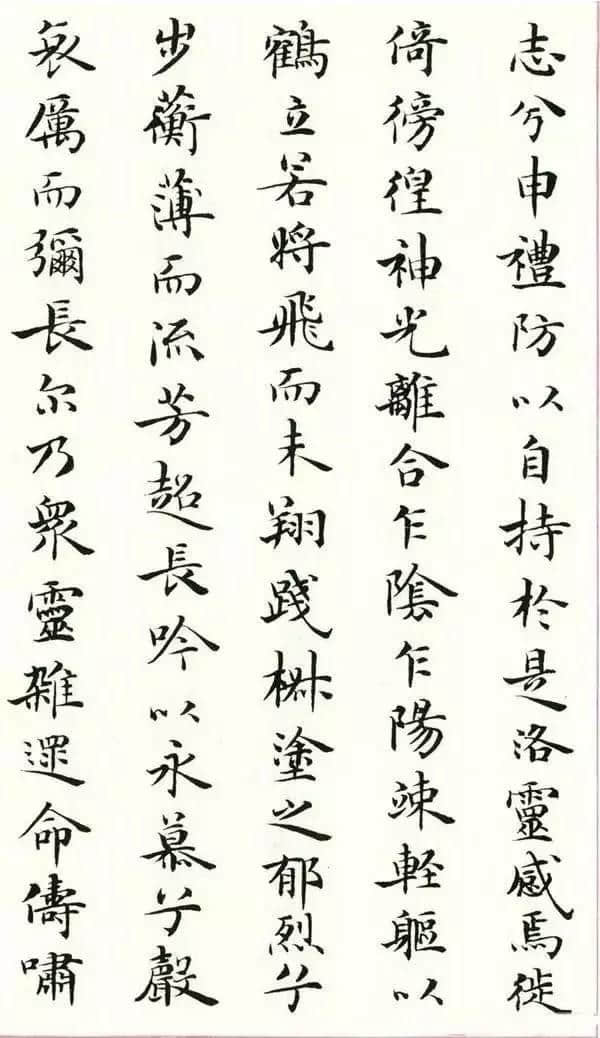 志兮申禮防以自持於是洛靈感焉徙
倚徬徨神光離合乍陰乍陽竦軽軀以
鶴立若將飛而未翔踐椒塗之郁烈兮
步蘅薄而流芳超長吟以永慕兮聲
哀厲而彌長尔乃衆靈雜遝命儔嘯